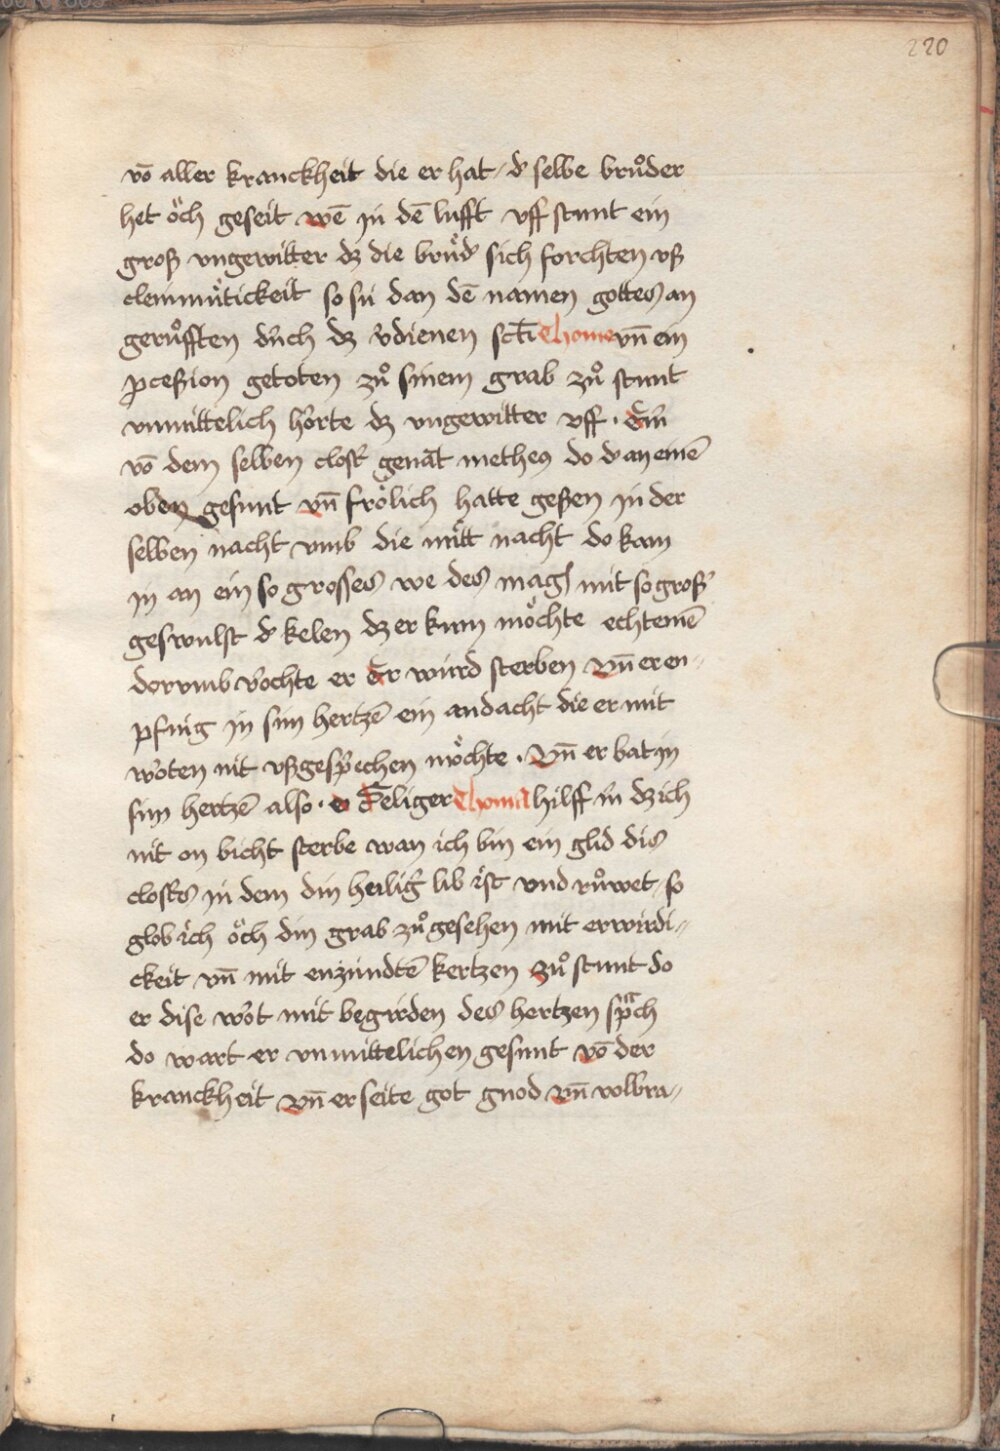 220
vō aller kranckheit die er hat / d' selbe brůder
het öch geseit wē in dē lufft vff stunt ein
groß vngewitter dz die brůd' sich forchten vß
cleinmütickeit so sü dan dē namen gottes an
gerůfften durch dz v'dienen scti Thome vn̄ ein
pceßion getoten zů sinem grab zů stunt
vnmittelich horte dz vngewitter vff · Ein
vō dem selben clost' genāt metheus do d' an einē
oben gesunt vn̄ frölich hatte geßen in der
selben nacht vmb die mitt nacht do kam
in an ein so grosses we des mag mit so groß'
geswulst d' kelen dz er kum möchte echtemē
dorvmb vorchte er er würd sterben vn̄ er en„
pfing in sim hertzē ein andacht die er mit
worten nit vßgesprechen möchte · vn̄ er bat in
sim hertzē also · o Seliger Thoma hilff mir dz ich
nit on bicht sterbe wan ich bin ein glid dis
closters in dem din heilig' lib ist vnd růwet / so
glob ich öch din grab zů gesehen mit erwirdi„
ckeit vn̄ mit enzündtē kertzen zů stunt do
er dise wort mit begirden des hertzen sprach
do wart er vnmittelichen gesunt vō der
kranckheit vn̄ er seite got gnod vn̄ volbra„